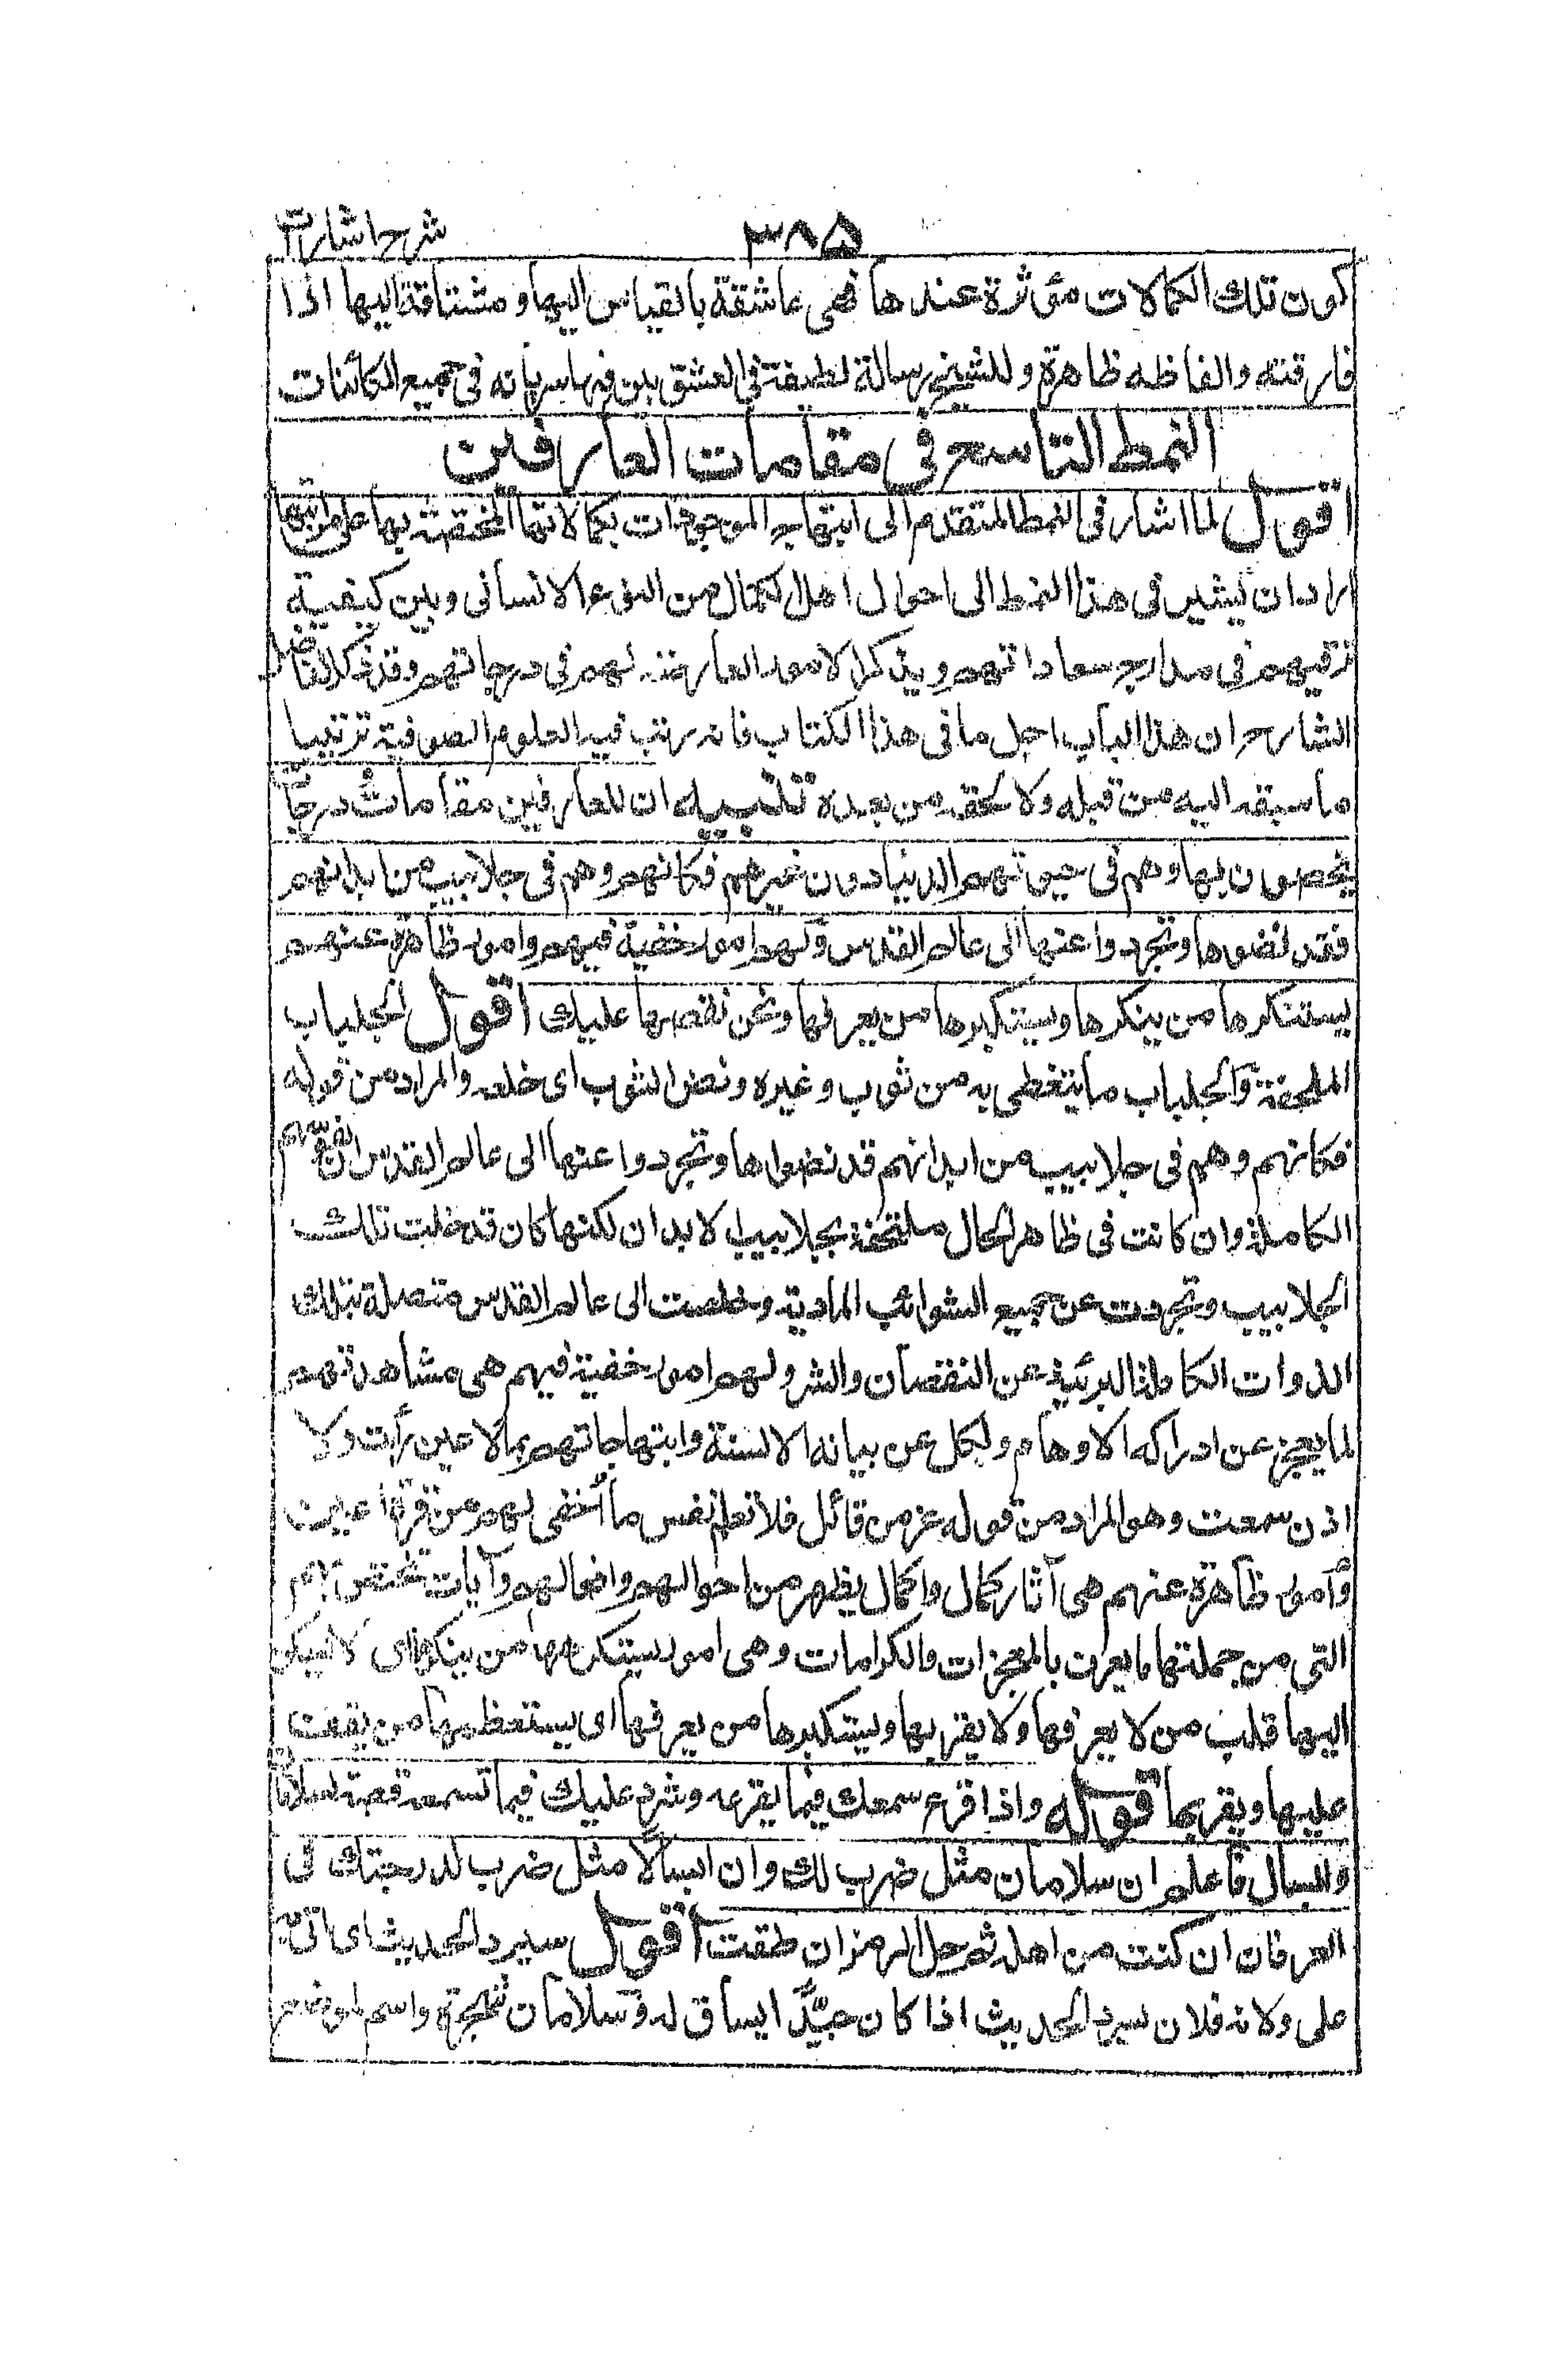 شرح اشارات
٣٨٥
كون تلك الكمالات مؤثرة عندها فهى عاشقة بالقياس اليها و مشتاقة اليها اذا
فارقته والفاظه ظاهرة وللشيخ رسالة لطيفة فى العشق بين فيها سريانه فى جميع الكائنات
النمط التاسع فى مقامات العارفين
اقول لما اشار فى النمط المتقدم الى ابتهاج الموجودات بكمالاتها المختصة بها على مراتبها
اراد ان يشير فى هذا النمط الى احوال اهل الكمال من النوع الانسانى و بين كيفية
ترقيهم فى مدارج سعاداتهم و يذكر الامور العارضة لهم فى درجاتهم وقد ذكر الفاضل
الشارح ان هذا الباب اجل ما فى هذا الكتاب فانه رتب فيه العلوم الصوفية ترتيبا
ما سبقه اليه من قبله ولا لحقه من بعده تنبيه ان للعارفين مقامات و درجات
يخصون بها وهم فى حيوتهم الدنيا دون غيرهم فكانهم وهم فى جلابيب من ابدانهم
فقد نضوها وتجردوا عنها الى عالم القدس و لهم امور خفية فيهم وامور ظاهرة عنهم
يستنكرها من ينكرها ويستكبرها من يعرفها ونحن نقصها عليك اقول الجلباب
الملحفة والجلباب ما يتغطى به من ثوب وغيره ونضا الثوب اى خلعه والمراد من قوله
فكانهم وهم فى جلابيب من ابدانهم قد نضوها وتجردوا عنها الى عالم القدس ان نفوسهم
الكاملة وان كانت فى ظاهر الحال ملتحفة بجلابيب الابدان لكنها كان قد خلعت تلك
الجلابيب وتجردت عن جميع الشوائب المادية وخلصت الى عالم القدس متصلة بتلك
الذوات الكاملة البريئة عن النقصان والشر ولهم امور خفية فيهم هى مشاهدتهم
لما يعجز عن ادراكه الاوهام و يكل عن بيانه الالسنة وابتهاجاتهم بما لا عين رأت ولا
اذن سمعت وهو المراد من قوله عز من قائل فلا تعلم نفس ما أخفى لهم من قرة اعين
وامور ظاهرة عنهم هى آثار كمال واكمال يظهر من احوالهم وافعالهم وآيات تختص بهم
التى من جملتها ما يعرف بالمعجزات والكرامات وهى امور يستنكرها من ينكرها اى لا يسكن
اليها قلب من لا يعرفها ولا يقر بها ويستكبرها من يعرفها اى يستعظمها من يقف
عليها ويقر بها قوله واذا قرع سمعك فيما يقرعه وسرد عليك فيما تسمعه قصة لسلامان
وابسال فاعلم ان سلامان مثل ضرب لك وان ابسالا مثل ضرب لدرجتك فى
العرفان ان كنت من اهله ثم حل الرمز ان طقت اقول سرد الحديث اى اتى به
على ولائه فلان يسرد الحديث اذا كان جيّد السياق له وسلامان شجرة واسم لموضع